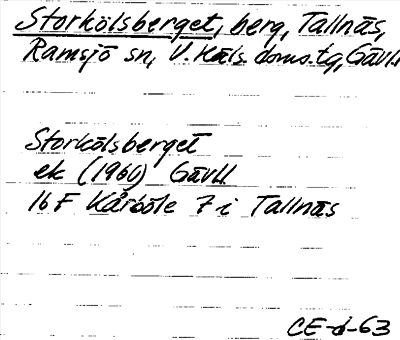 Storkölsberget, berg, Tallnäs,
Ramsjö sn, V. Häls. doms.tg, Gävl.
Storkölsberget
ek (1960) Gävl.
16 F Kårböle 7 i Tallnäs
CE-d-63